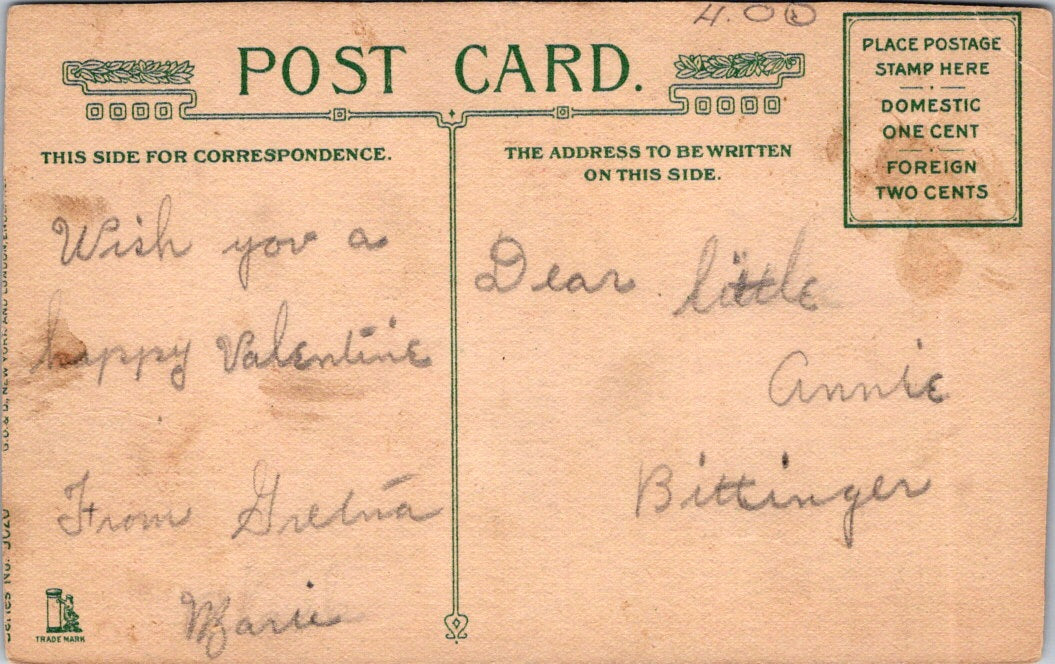 4.00
POST CARD.
PLACE POSTAGE
STAMP HERE
DOMESTIC
ONE CENT
FOREIGN
TWO CENTS
THIS SIDE FOR CORRESPONDENCE.
THE ADDRESS TO BE WRITTEN
ON THIS SIDE.
Wish you a
happy Valentine
From Gretna
Marie
Dear little
Annie
Bittinger
TRADE MARK
Series No.
NEW YORK AND LONDON